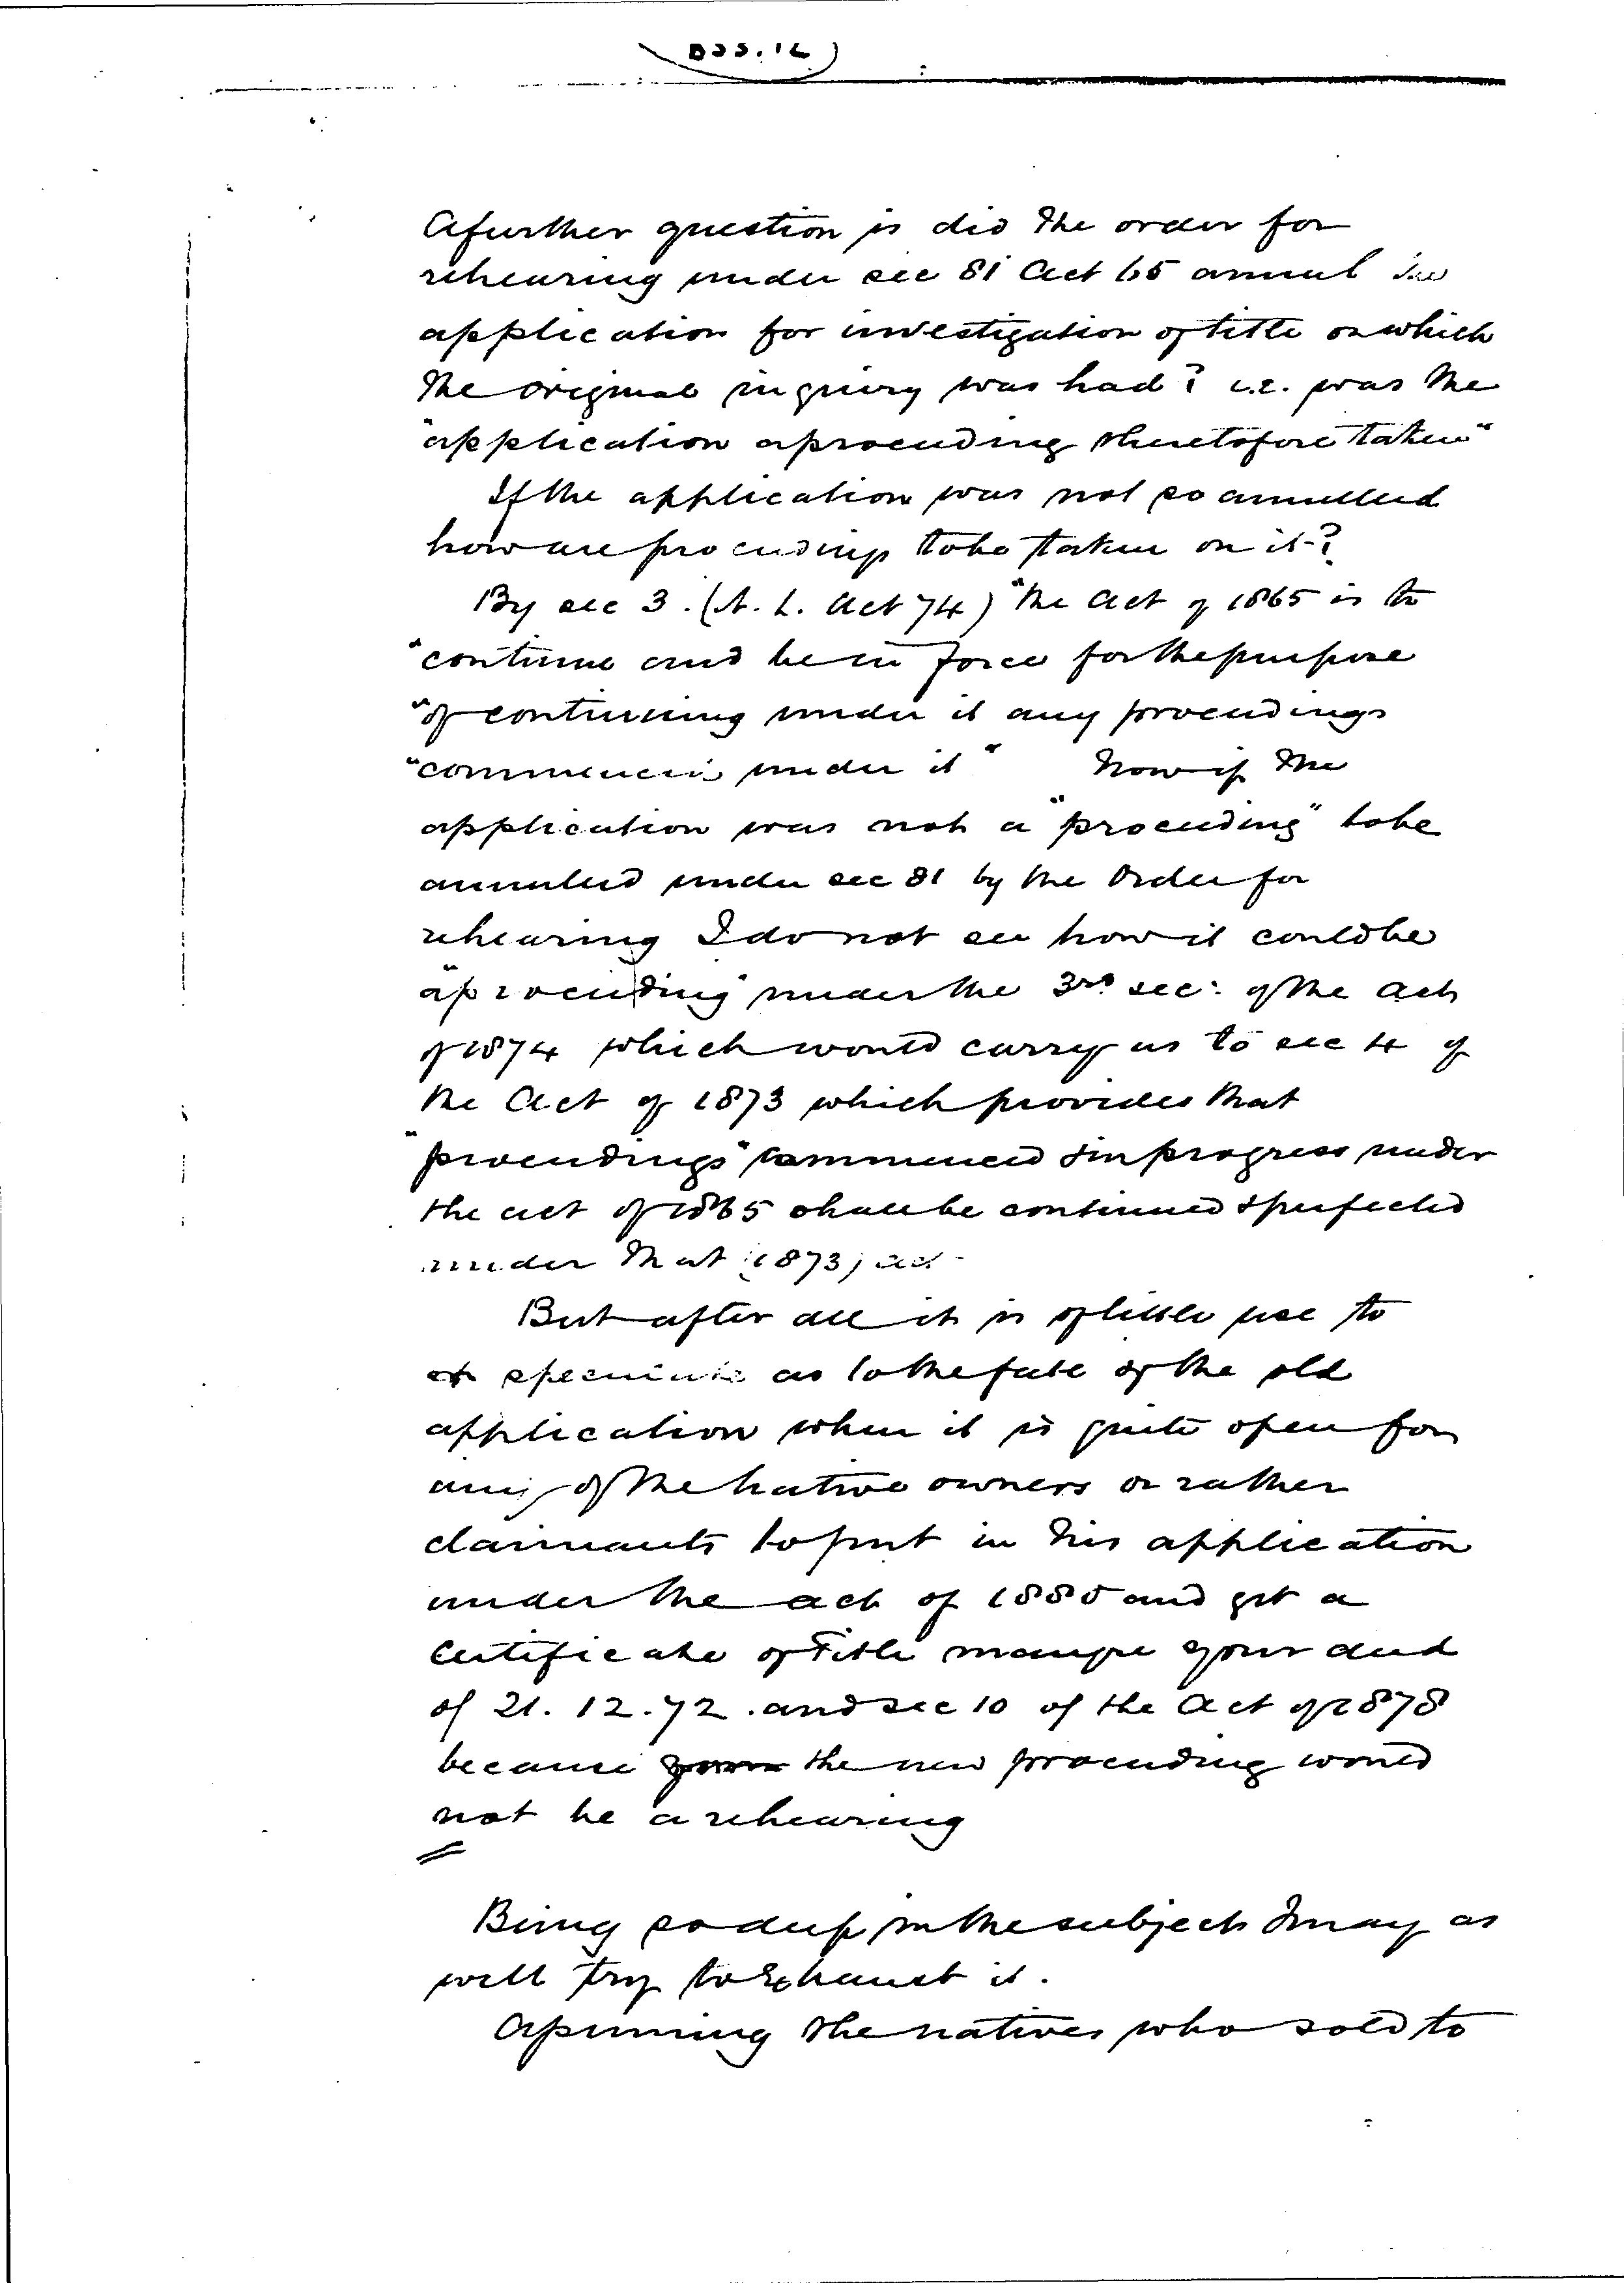 A further question is did the order for
rehearing under sec 81 Act 65 annul the
application for investigation of title on which
the original inquiry was had? i.e. was the
"application a proceeding theretofore taken"
If the application was not so annulled
how are proceedings to be taken on it?
By sec 3. (N. L. Act 74) "the Act of 1865 is to
"continue and be in force for the purpose
"of continuing under it any proceedings
"commenced under it" Now if the
application was not a "proceeding" to be
annulled under sec 81 by the Order for
rehearing I do not see how it could be
"a proceeding" under the 3rd sec: of the Act
of 1874 which would carry us to sec 4 of
the Act of 1873 which provides that
"proceedings" commenced & in progress under
the act of 1865 shall be continued & perfected
under that (1873) act
But after all it is of little use to
speculate as to the fate of the old
application when it is quite open for
any of the native owners or rather
claimants to put in his application
under the act of 1880 and get a
Certificate of Title maugre your deed
of 21. 12. 72. and sec 10 of the Act of 1878
because the new proceeding would
not be a rehearing
Being so deep in the subject I may as
well try to Exhaust it.
Assuming the natives who sold to